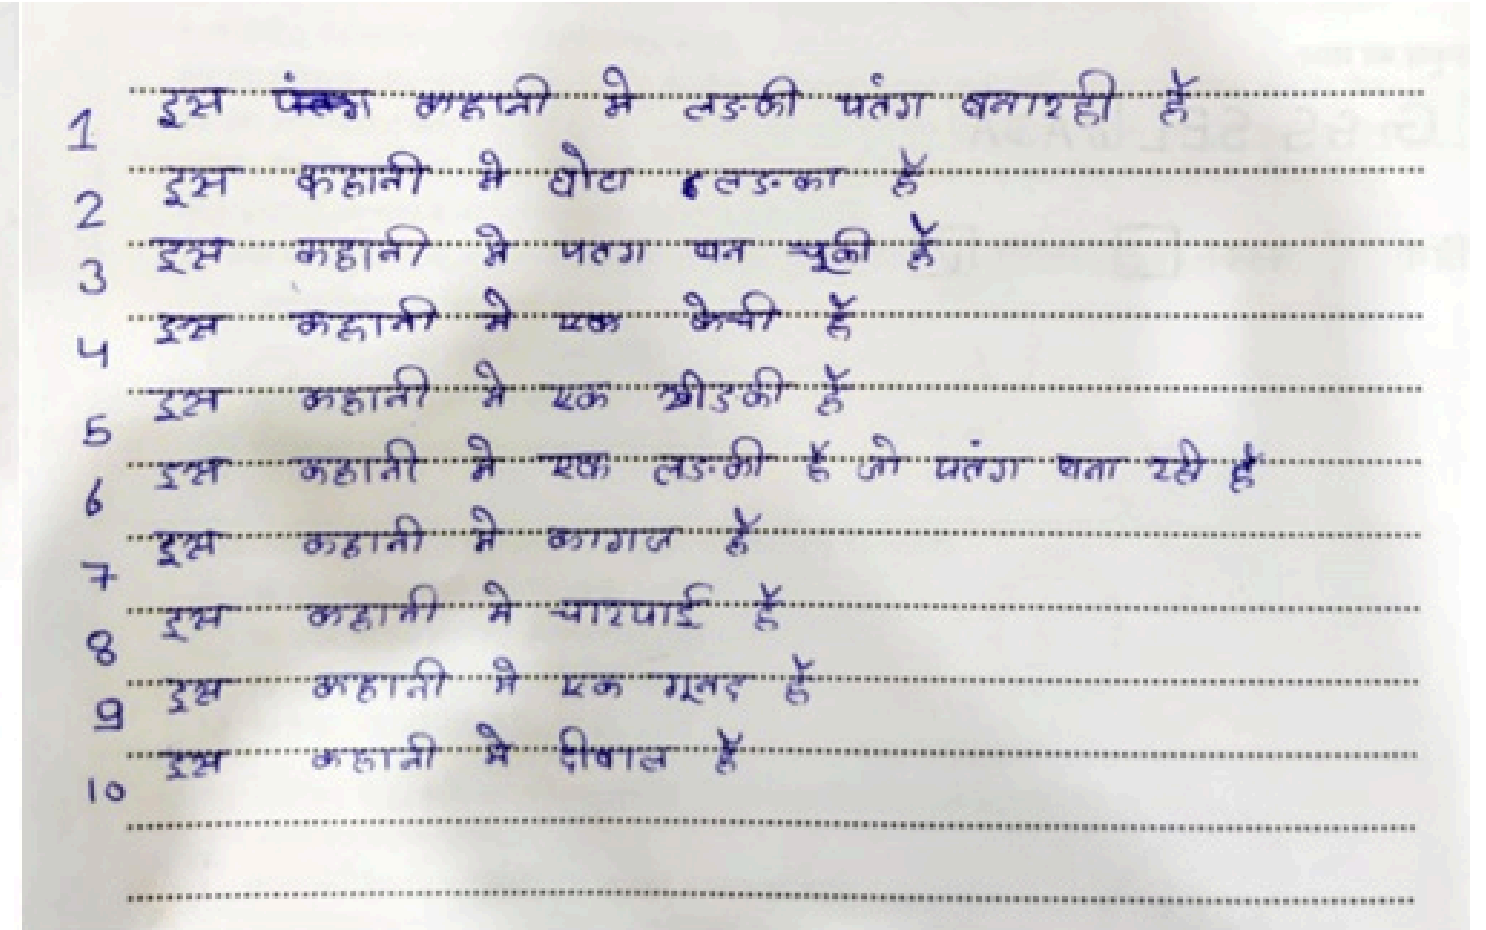 1 इस कहानी मे लडकी पतंग बनारही है
2 इस कहानी मे छोटा लडका है
3 इस कहानी मे पतग बन चूकी है
4 इस कहानी मे एक केची है
5 इस कहानी मे एक खीडकी है
6 इस कहानी मे एक लडकी है जो पतंग बना रही है
7 इस कहानी मे कागज है
8 इस कहानी मे चारपाई है
9 इस कहानी मे एक है
10 इस कहानी मे दीवाल है